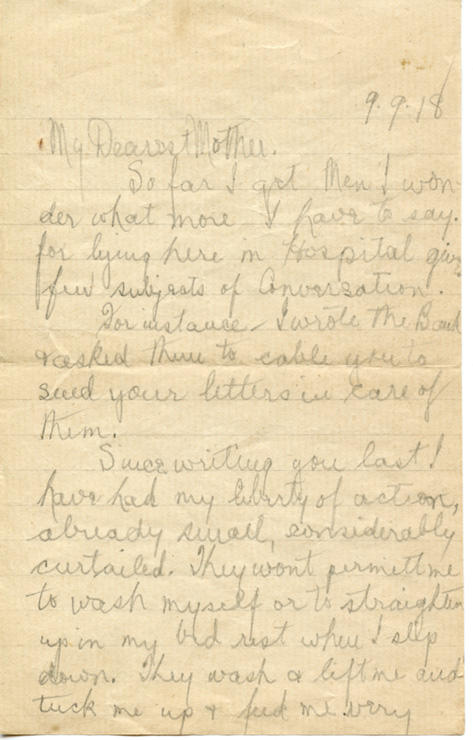 9.9.18
My Dearest Mother.
So far I get then I won-
der what more I have to say.
for lying here in Hospital give
few subjects of Conversation.
For instance - I wrote the Bank
& asked them to cable you to
send your letters in care of
them.
Since writing you last I
have had my liberty of action,
already small, considerably
curtailed. They wont permitt me
to wash myself or to straighten
up in my bed rest when I slip
down. They wash & lift me and
tuck me up & feed me very